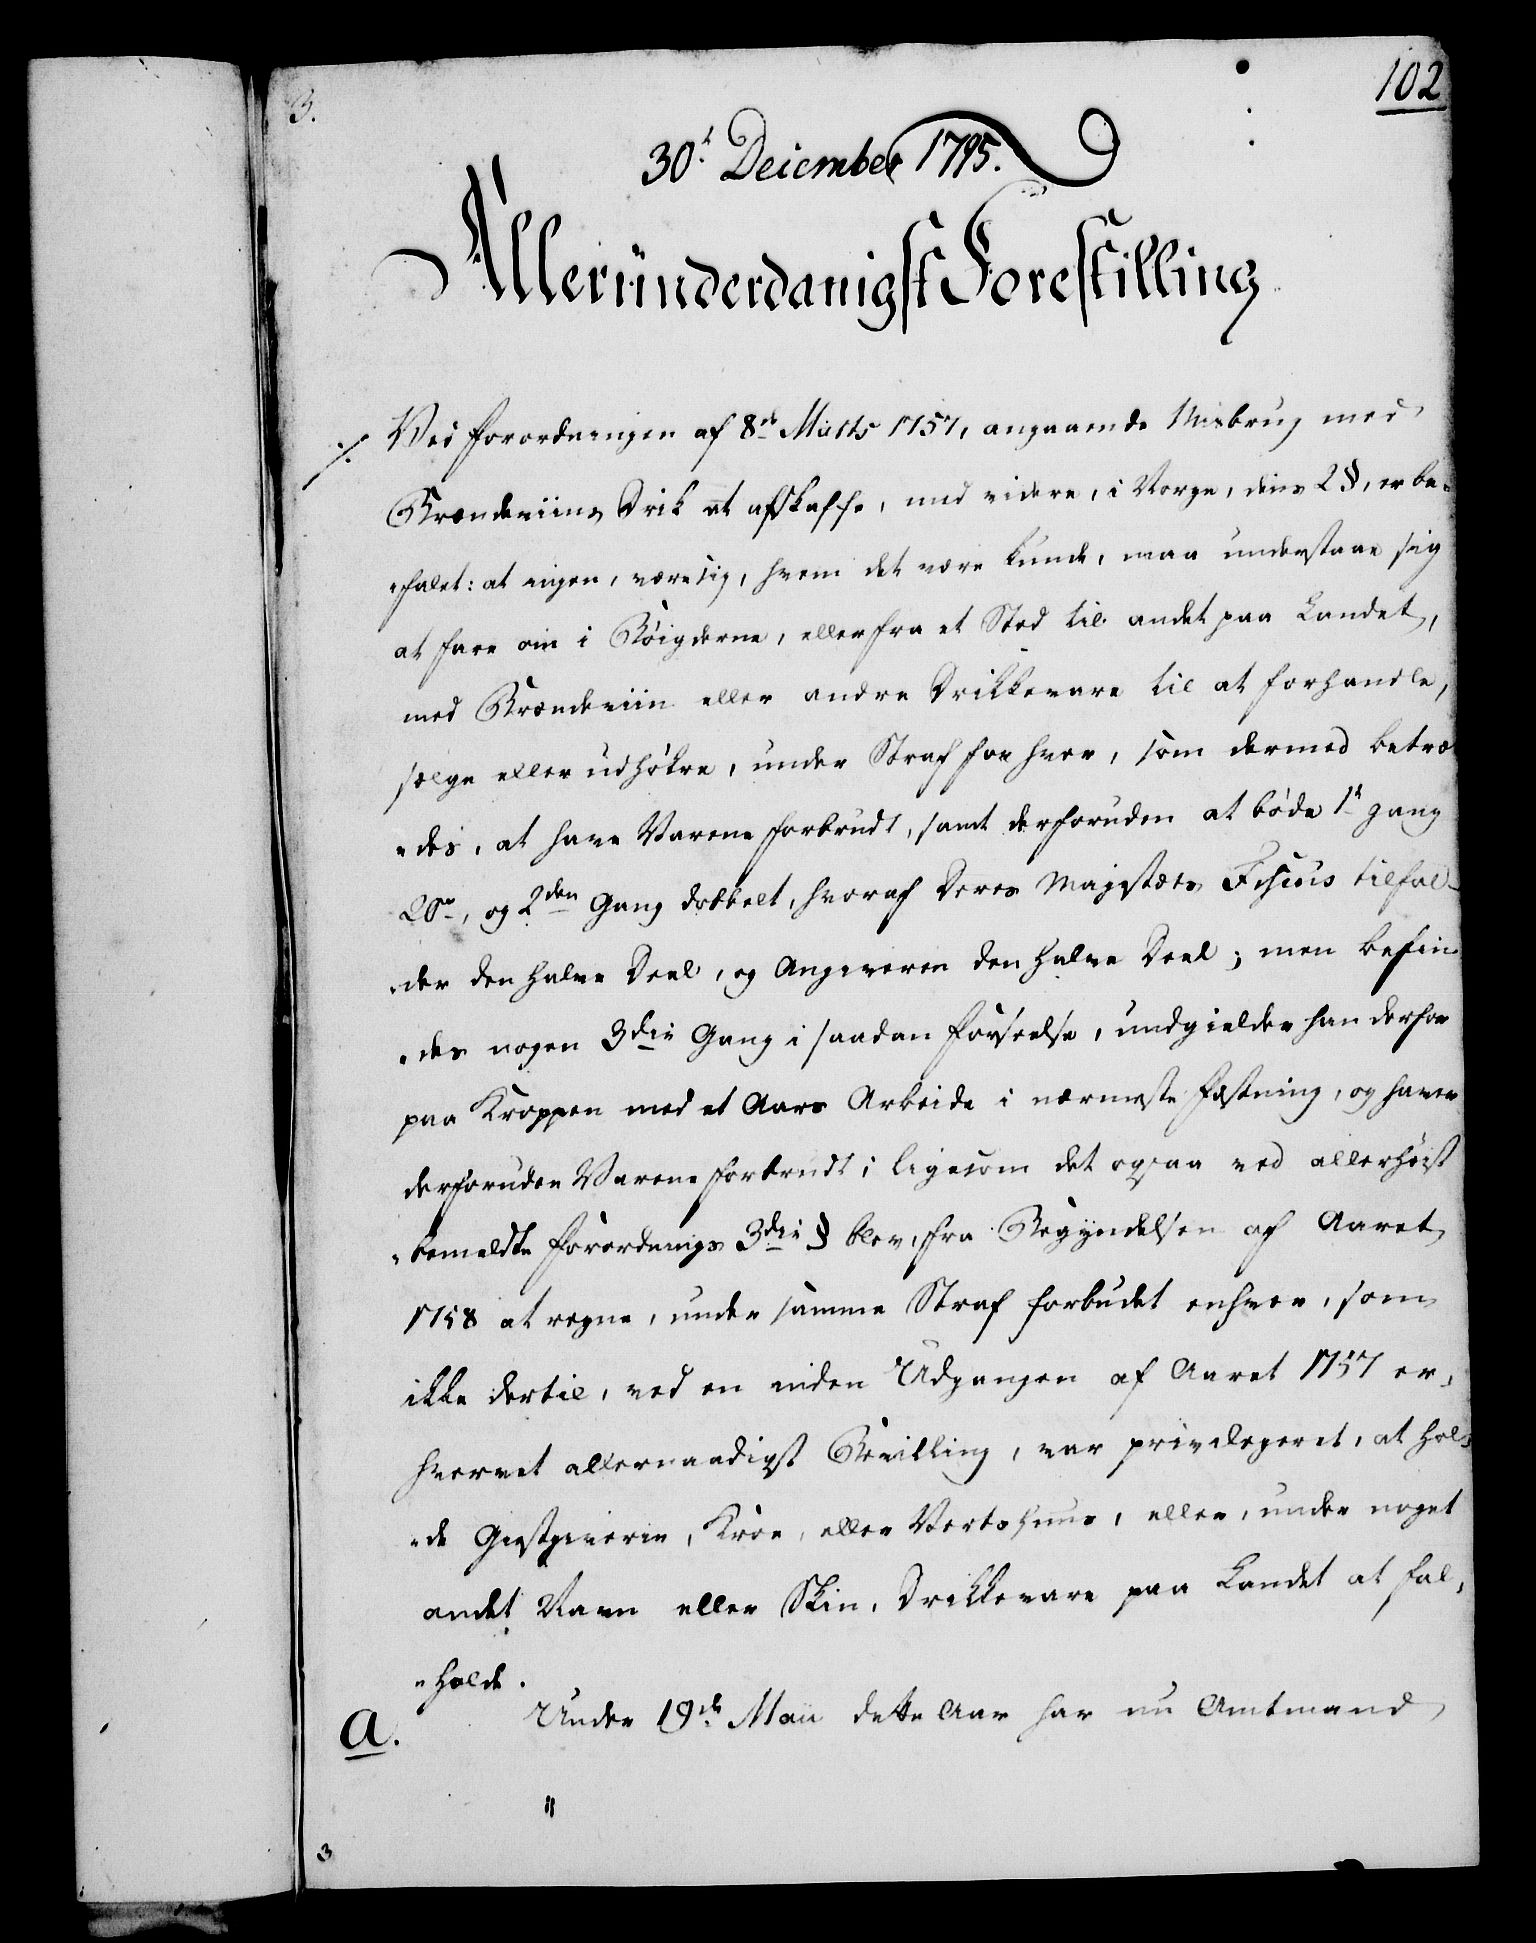 3.
102
30t December 1795.
Allerunderdanigst Forestilling
Ved Forordningen af 8de Marts 1757, angaaende Misbrug med
Brændeviins Drik at afskaffe, med videre, i Norge, dens 2 §, er be-
"falet: at ingen, være sig, hvem det være kunde, maa understaae sig
at fare om i Bøigderne, eller fra et Sted til andet paa Landet,
med Brændeviin eller andre Drikkevare til at forhandle,
sælge eller udhøkre, under Straf for hver, som dermed betræ-
"des, at have Varene forbrudt, samt derforuden at bøde 1te gang
, og 2den Gang dobbelt, hvoraf Deres Majestæts Fiscus tilfal-
"der den halve Deel, og Angiveren den halve Deel; men befin-
"des nogen 3die Gang i saadan Forseelse, undgielder han derfor
paa Kroppen med et Aars Arbeide i nærmeste Fæstning, og haver
derforuden Varene forbrudt; ligesom det ogsaa ved allerhøist
"bemeldte Forordnings 3die § blev, fra Begyndelsen af Aaret
1758 at regne, under samme Straf forbudet enhver, som
ikke dertil, ved en inden Udgangen af Aaret 1757 er-
hvervet allernaadigst Bevilling, var privilegeret, at hol-
"de Giestgiverie, Kroe, eller Vertshuus, eller, under noget
andet Navn eller Skin, Drikkevare paa Landet at fal-
"holde.
a.
Under 19de Maii dette Aar har nu Amtmand
"
3